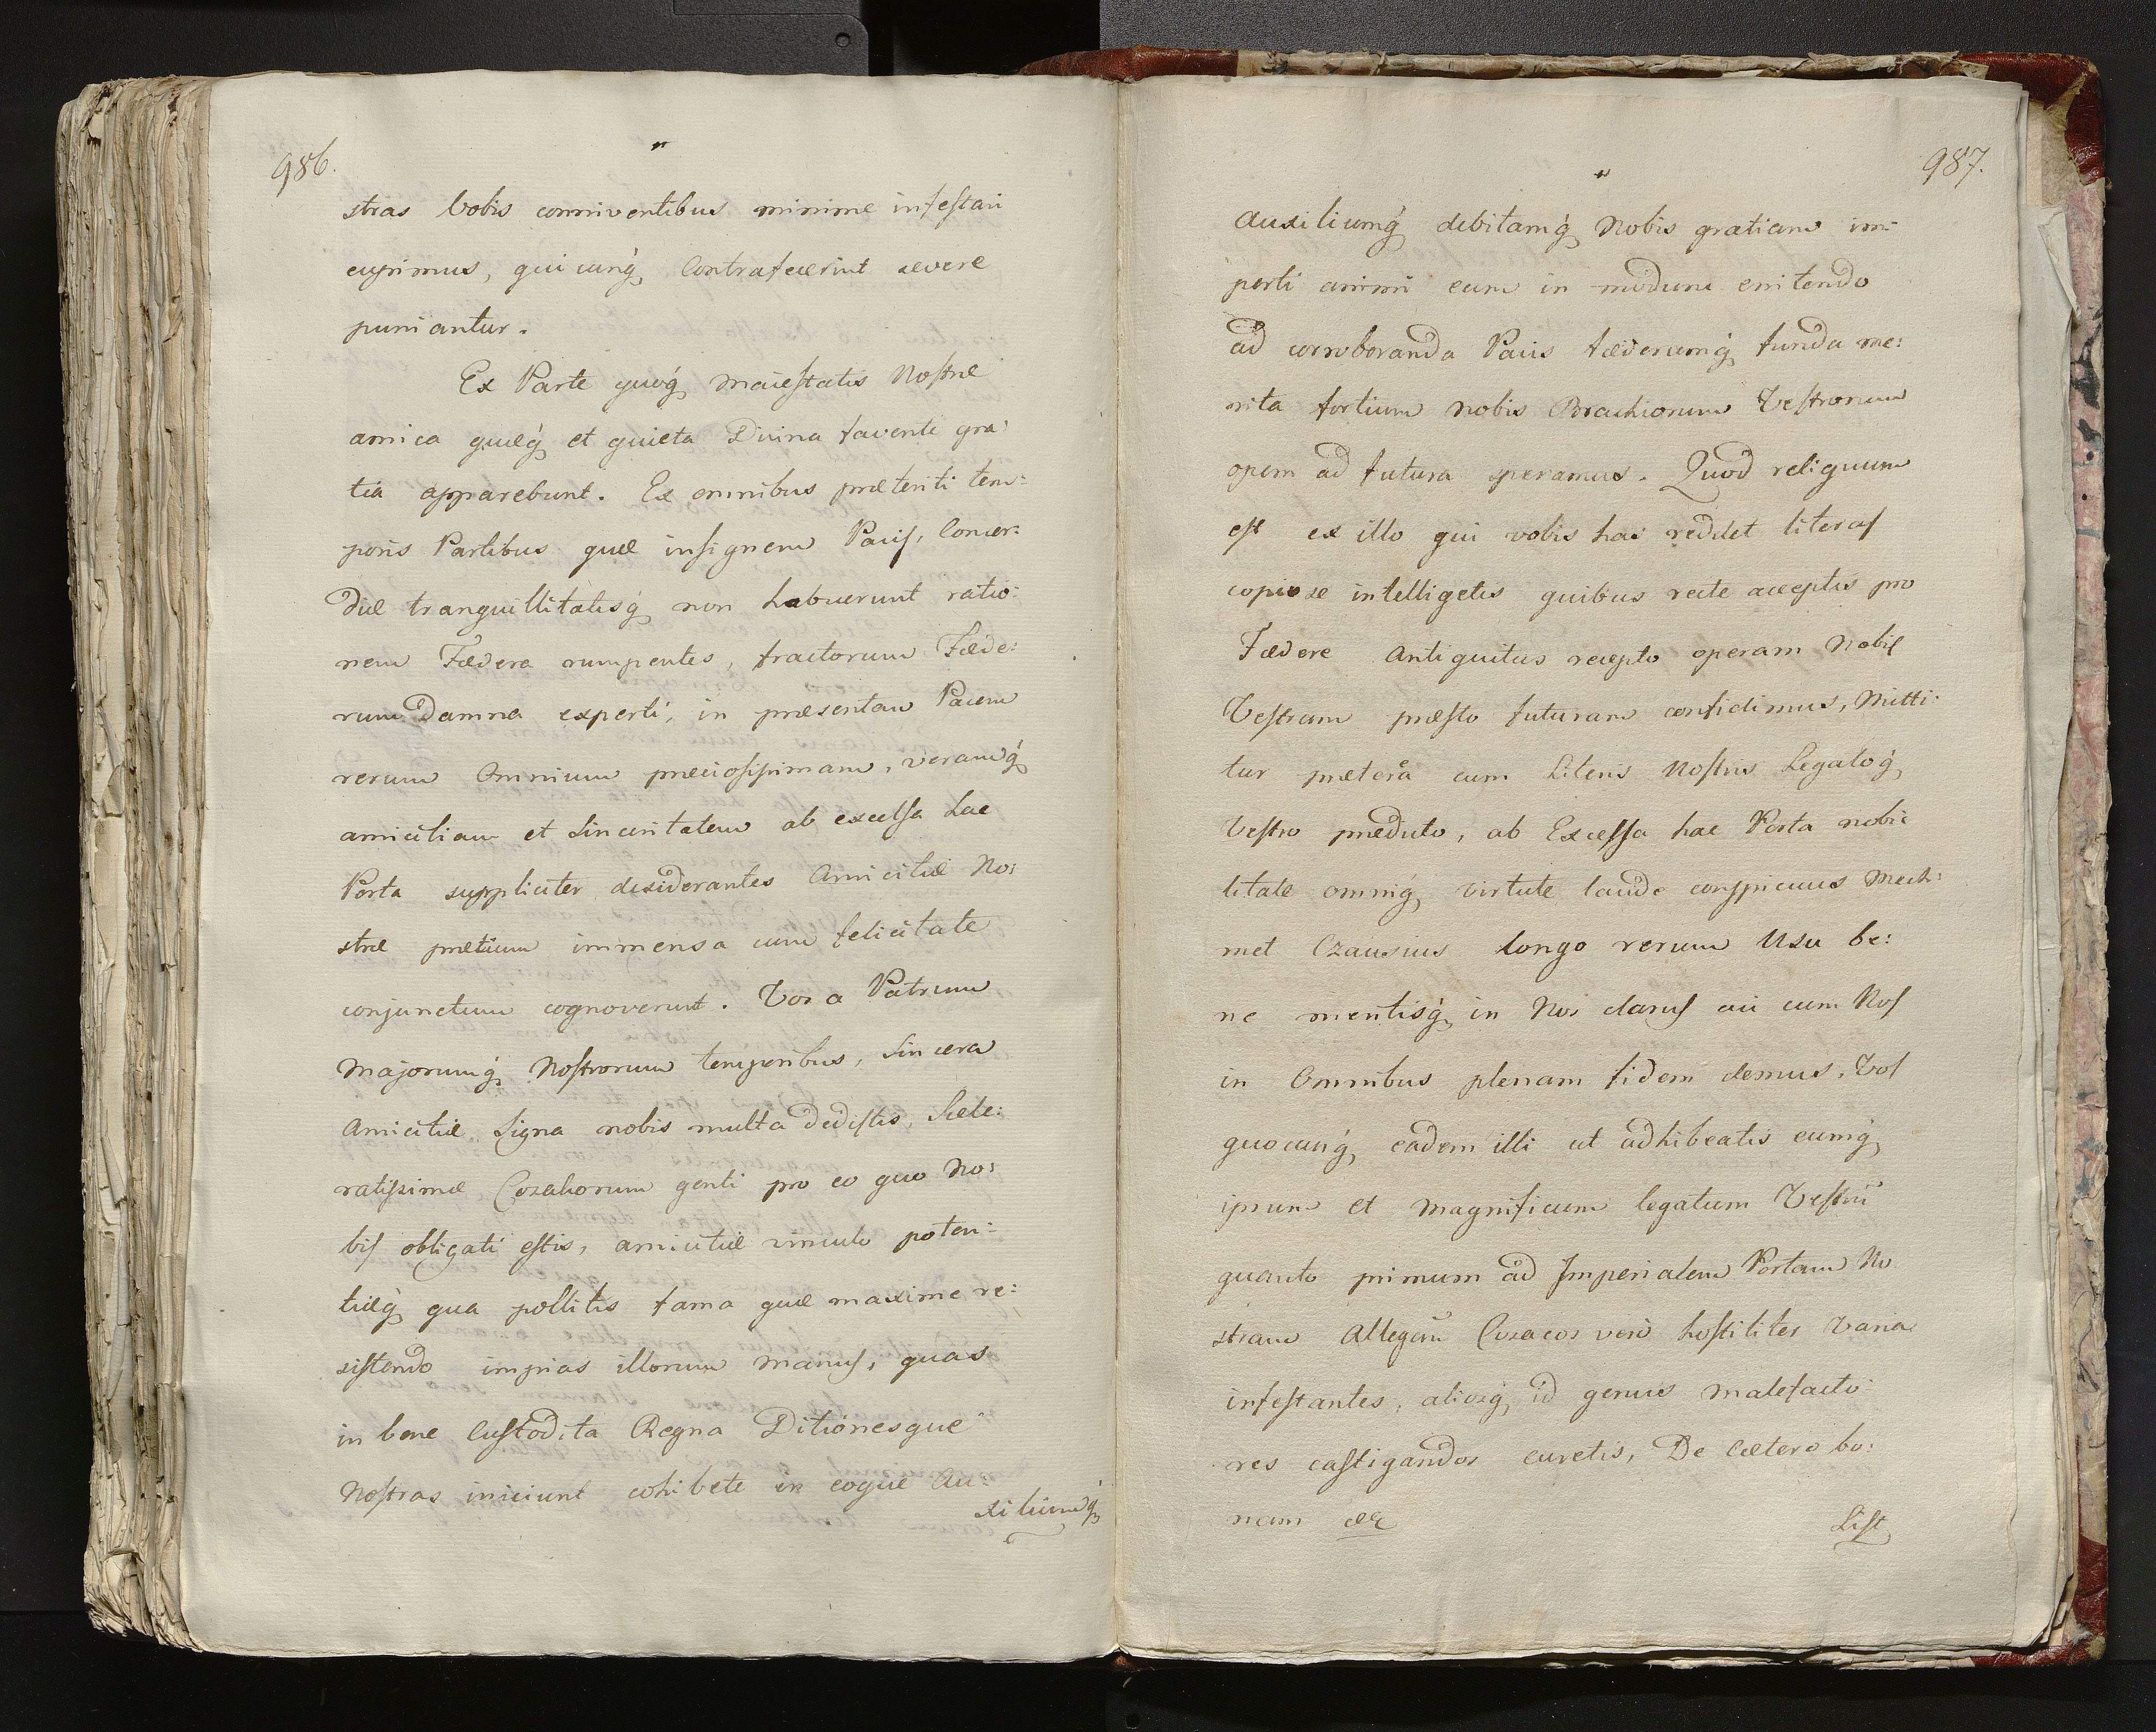 986.
stras Vobis conniventibus minime infestari
cupimus, quicunq́ Contrafecerint severe
puniantur.
Ex Parte quoq́ Maiestatis Nostræ
amica quæq́ et quieta Divina favente gra:
tia apparebunt. Ex omnibus præteriti tem:
poris Partibus quæ insignem Pacis, Concor:
diæ tranquillitatisq́ non habuerunt ratio:
nem Fædera rumpentes, fractorum Fæde:
rum Damna experti, in præsentem Pacem
rerum Omnium preciosissimam, veramq́
amicitiam et Sinceritatem ab excelsa hac
Porta suppliciter desiderantes Amicitiæ No:
stræ prætium immensa cum felicitate
conjunctum cognoverunt. Vos a Patrum
Majorumq́ Nostrorum temporibus, Sincera
Amicitiæ Signa nobis multa dedistis, Scele:
ratissimæ Cozakorum genti pro eo quo No:
bis obligati estis, amicitiæ vinculo poten:
tiæq́ qua polletis fama quæ maxime re:
sistendo impias illorum manus, quas
in bene Custodita Regna Ditionesque
Nostras iniciunt cohibete in eoque Au:
xiliumq́
987.
Auxiliumq́ debitamq́ Nobis gratiam im:
perti animi eum in modum enitendo
ad corroboranda Pacis fæderumq́ funda me:
nta fortium nobis Brachiorum Vestrorum
opem ad futura speramus. Quod reliquum
est ex illo qui vobis has reddet literas
copiose intelligetis quibus recte acceptis pro
Fædere Antiquitus recepto operam Nobis
Vestram præsto futuram confidimus, Mitti:
tur præterea cum Literis Nostris Legatoq́
Vestro prædicto, ab Excelsa hac Porta nobi:
litate omniq́ virtute laude conspicuus Mech:
met Czausius longo rerum Usu be:
ne mentisq́ in Nos clarus cui cum Nos
in Omnibus plenam fidem demus, Vos
quocunq́ eadem illi ut adhibeatis eumq́
ipsum et Magnificum legatum Vestrū
quanto primum ad Imperialem Portam No
stram Allegetis Cozacos vero hostiliter Varia
infestantes, aliosq́ id genus malefacto:
res castigandos curetis, De Cætero bo:
nam &c
List